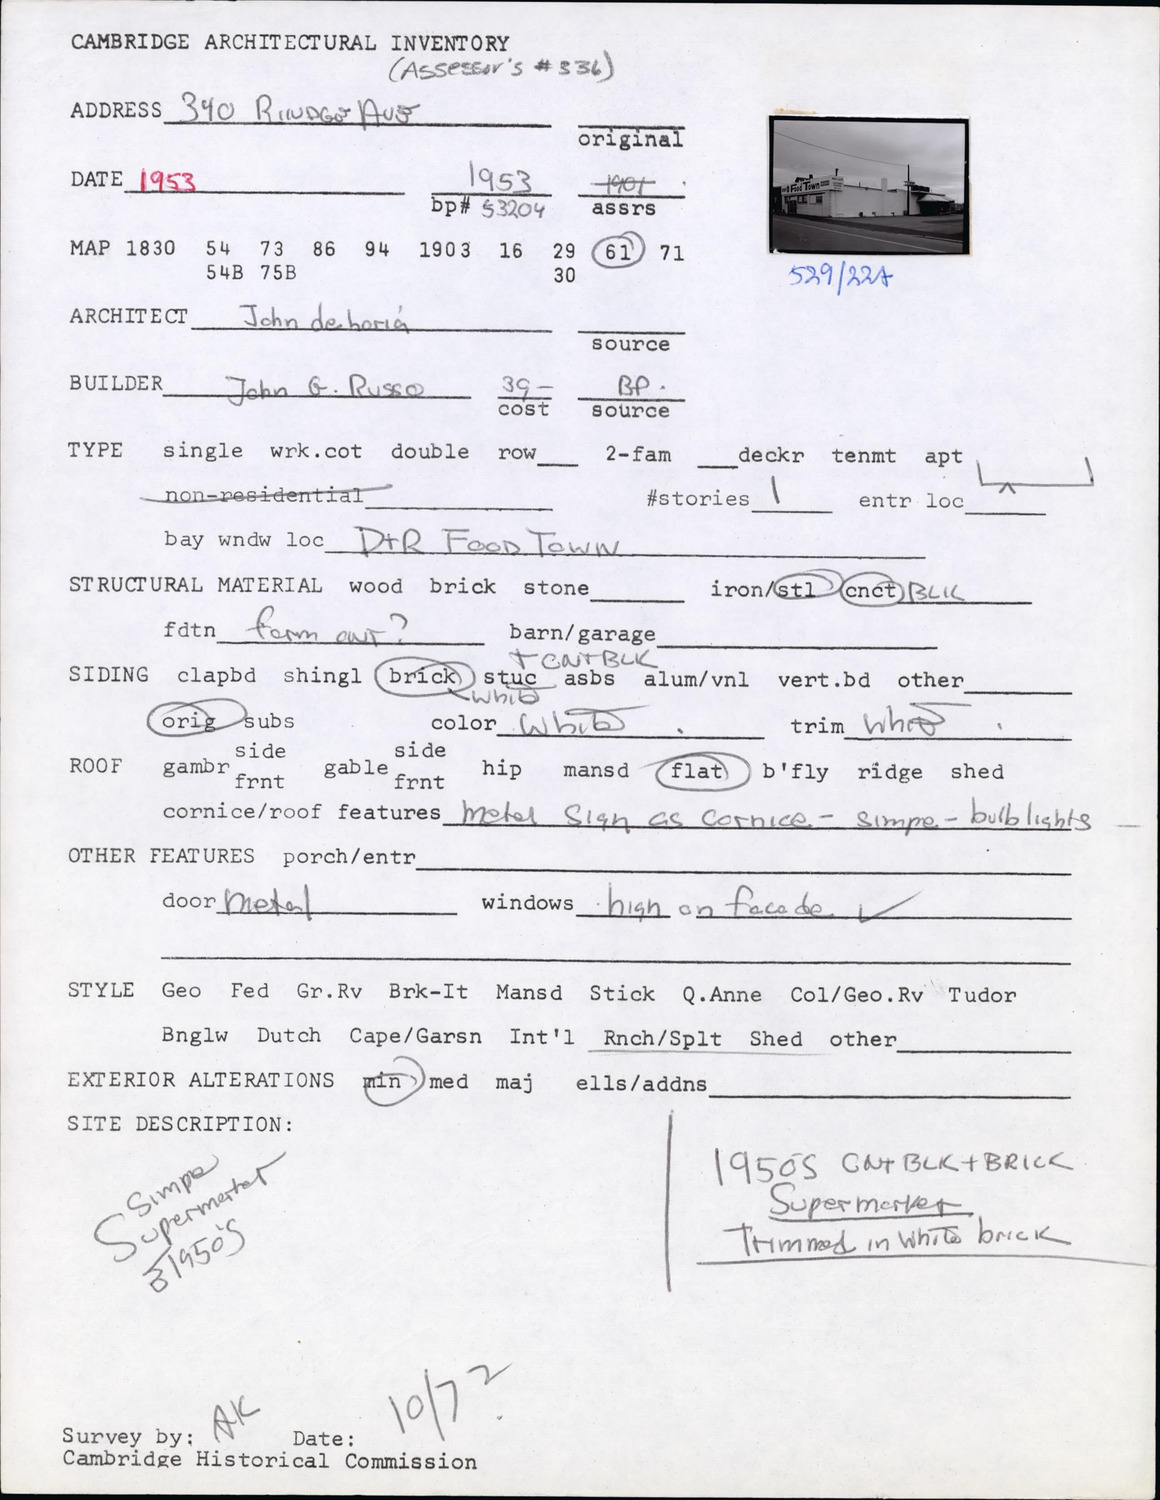 CAMBRIDGE ARCHITECTURAL INVENTORY
(Assessor's # 336)
ADDRESS 340 Rindge Ave
original
DATE 1953 1953 1901
bp# 53204 assrs
MAP 1830 54 73 86 94 1903 16 29 61 71
54B 75B 30
ARCHITECT John
source
BUILDER John G. Russo 39- BP.
cost source
TYPE single wrk.cot double row 2-fam deckr tenmt apt
non-residential #stories 1 entr loc
bay wndw loc D+R FOOD TOWN
STRUCTURAL MATERIAL wood brick stone iron/stl cnct BLK
fdtn barn/garage
+ CNT BLK
SIDING clapbd shingl brick stuc asbs alum/vnl vert.bd other
white
orig subs color White trim White
ROOF gambr side frnt gable side frnt hip mansd flat b'fly ridge shed
cornice/roof features Metal Sign as Cornice - simpe - bulb lights
OTHER FEATURES porch/entr
door Metal windows high on facade
STYLE Geo Fed Gr.Rv Brk-It Mansd Stick Q.Anne Col/Geo.Rv Tudor
Bnglw Dutch Cape/Garsn Int'l Rnch/Splt Shed other
EXTERIOR ALTERATIONS min med maj ells/addns
SITE DESCRIPTION:
Simpe
Supermarket
1950's
1950's CNT BLK + BRICK
Supermarket
Trimmed in White brick
Survey by: AK Date: 10/72
Cambridge Historical Commission
Food Town
529/22A